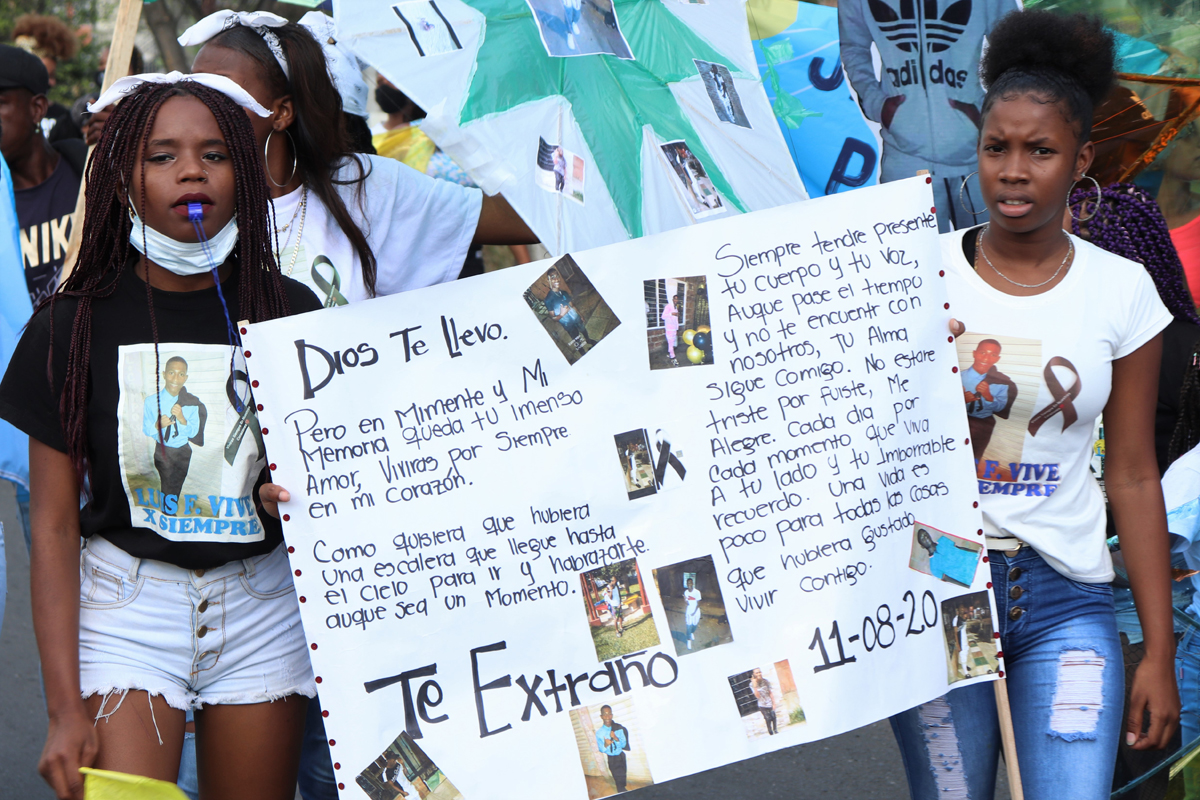 adidas
NIK
P
Dios Te llevo.
Pero en Mimente y Mi
Memoria queda tu imenso
Amor, Viviras por siempre
en mi corazón.
Como quisiera que hubiera
una escalera que llegue hasta
el cielo para ir y habrazarte.
auque sea un Momento.
Te Extraño
Siempre tendre presente
tu cuerpo y tu voz,
Auque pase el tiempo
y no te encuentr con
nosotros, Tu Alma
sigue comigo. No estare
triste por fuiste, Me
Alegre. Cada dia por
Cada momento que viva
A tu lado y tu Imborrable
recuerdo. una vida es
poco para todas las cosas
que hubiera gustado
vivir contigo.
11-08-20
LUIS F. VIVE
X SIEMPRE
F. VIVE
SIEMPRE